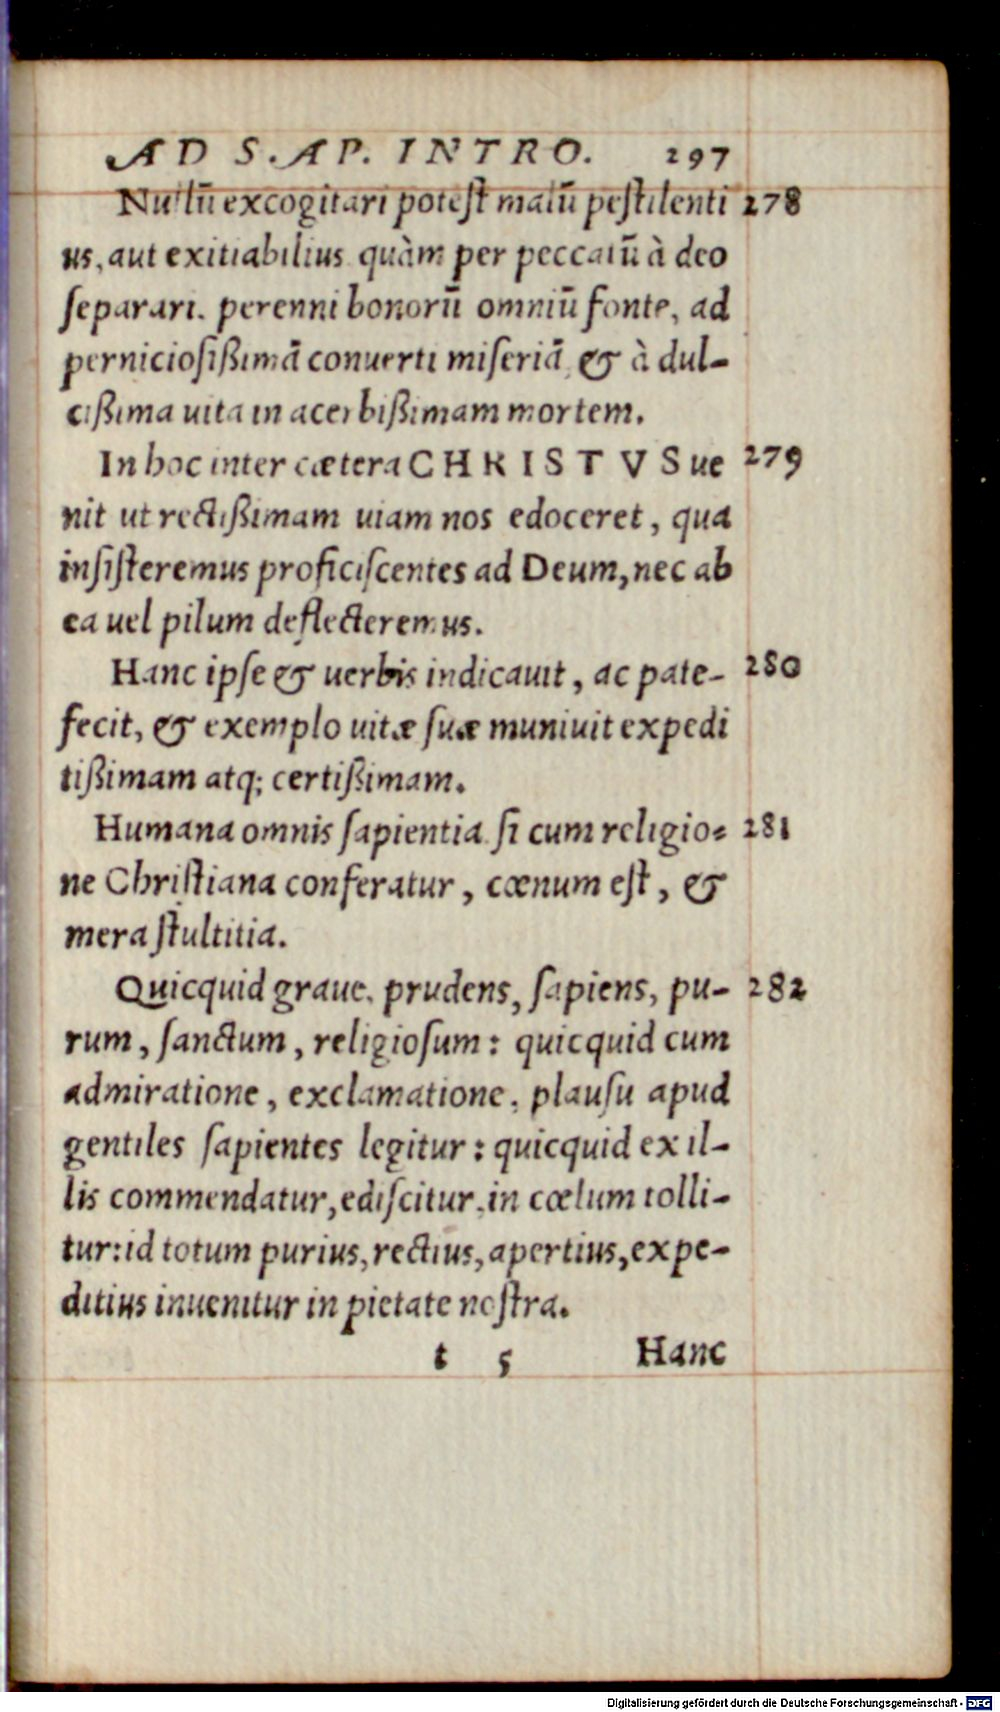 AD S. AP. INTRO. 297
Nullū excogitari poteſt malū peſtilenti 278
us, aut exitiabilius quàm per peccatū à deo
ſeparari, perenni bonorū omniū fonte, ad
pernicioſißimā conuerti miſeriā, & à dul-
cißima uita in acerbißimam mortem.
In hoc inter cætera CHRISTVS ue 279
nit ut rectißimam uiam nos edoceret, qua
inſiſteremus proficiſcentes ad Deum, nec ab
ea uel pilum deflecteremus.
Hanc ipſe & uerbis indicauit, ac pate- 280
fecit, & exemplo uitæ ſuæ muniuit expedi
tißimam atq; certißimam.
Humana omnis ſapientia ſi cum religio- 281
ne Chriſtiana conferatur, cœnum eſt, &
mera ſtultitia.
Quicquid graue, prudens, ſapiens, pu- 282
rum, ſanctum, religioſum: quicquid cum
admiratione, exclamatione, plauſu apud
gentiles ſapientes legitur: quicquid ex il-
lis commendatur, ediſcitur, in cœlum tolli-
tur: id totum purius, rectius, apertius, expe-
ditius inuenitur in pietate noſtra.
t 5 Hanc
Digitalisierung gefördert durch die Deutsche Forschungsgemeinschaft - DFG